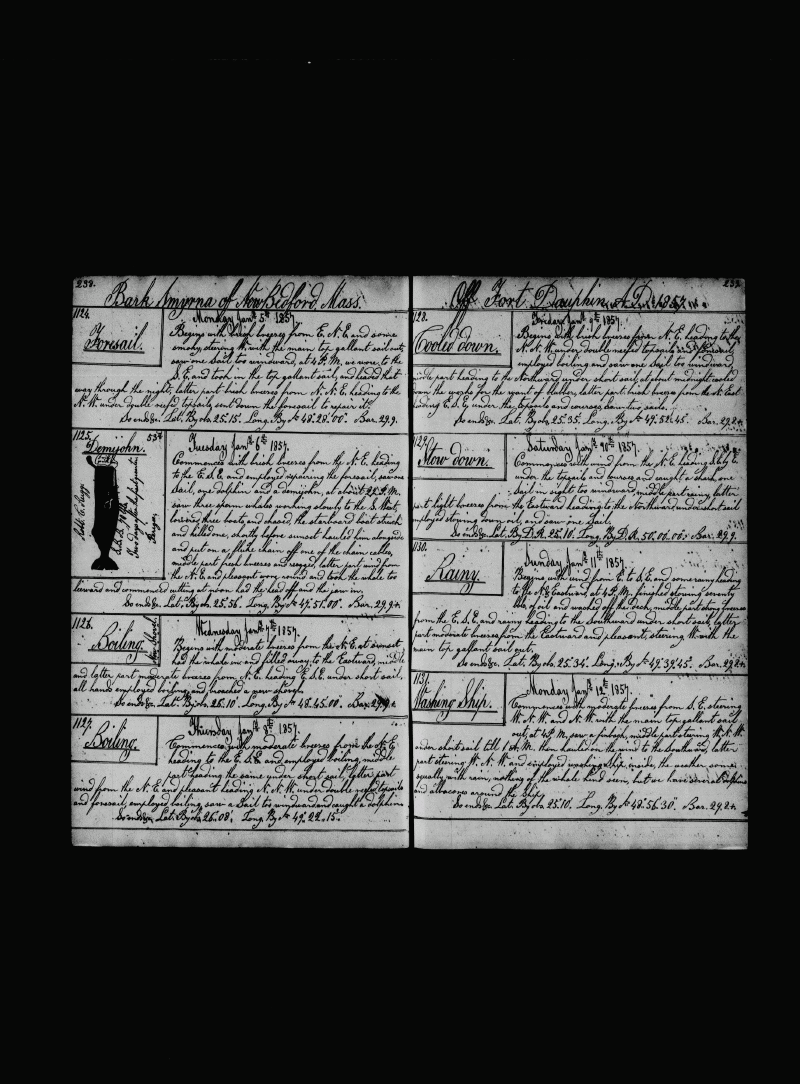 238.
Bark Smyrna of New Bedford, Mass.
1124.
Foresail.
Monday Jany. 5th 1857.
Begins with fresh breezes from E. N. E. and some
smoky, steering W. with the main top gallant sail out,
saw one Sail to windward, at 4 P. M. we wore to the
S. E. and took in the top gallant sail, and headed that
way through the night, latter part brisk breezes from N. N. E. heading to the
N. W. under double reef'd topsails sent down the foresail to repair it.
So ends &c. Lat. By ob. 25.15'. Long. By Ar 48.28.00". Bar. 29.9.
1125.
Demijohn.
53d
Tuesday Jany. 6th 1857.
Commences with brisk breezes from the N. E. heading
to the E. S. E. and employed repairing the foresail, saw one
Sail, one dolphin and a demijohn, at about P. M.
saw three sperm whales working slowly to the S. West,
lowered three boats, and chased, the starboard boat struck
and killed one, shortly before sunset hauled him alongside
and put on a fluke chain off one of the chain cables,
middle part fresh breezes and rugged, latter part wind from
the N. E. and pleasant wore round and took the whale too
leeward and commenced cutting at noon had the head off and the jaw in.
So ends &c. Lat. By ob. 25.56'. Long. By Ar 47.51.00". Bar. 29.9.
1126.
Boiling.
Wednesday Jany. 7th 1857.
Begins with moderate breezes from the N. E. at sunset
had the whale in and filled away to the Eastward, middle
and latter part moderate breezes from N. E. heading E. S. E. under short sail,
all hands employed boiling, and broached a new
So ends &c. Lat. By ob. 26.10'. Long. By Ar 48.45.00". Bar. 29.9.
1127.
Boiling.
Thursday Jany. 8th 1857.
Commences with moderate breezes from the N. E.
heading to the E. S. E. and employed boiling, middle
part heading the same under short sail, latter part
wind from the N. E. and pleasant heading N. N. W. under double reef'd topsails
and foresail, employed boiling saw a Sail too windward and caught a dolphin.
So ends &c. Lat. By ob. 26.08'. Long. By Ar 49.22.15".
239.
Off Fort Dauphin, A.D. 1857.
1128.
Cooled down.
Friday Jany. 9th 1857.
Begins with brisk breezes from N. E. heading to the
N. N. W. under double reefed topsails and foresail
employed boiling and saw one Sail too windward
middle part heading to the Northward under short sail, at about midnight cooled
down the works for the want of latter part brisk breeze from the N. East
heading E. S. E. under the topsails and courses, saw two sails.
So ends &c. Lat. By ob. 25.35'. Long. By Ar 49.52.45". Bar. 29.2.
1129.
Stow down.
Saturday Jany. 10th 1857.
Commences with wind from the N. E. heading E. by S.
under the topsails and courses and caught a shark, one
Sail in sight too windward, middle part rainy, latter
part light breezes from the Eastward heading to the Northward, under short sail
employed stowing down oil, and saw one Sail.
So ends &c. Lat. By D. R. 25.10'. Long. By D. R. 50.00.00". Bar. 29.9.
1130.
Rainy.
Sunday Jany. 11th 1857.
Begins with wind from E. to S. E. and some rainy heading
to the N. Eastward, at 4 P. M. finished stowing seventy
Bbls. of oil and washed off the deck, middle part strong breezes
from the E. S. E. and rainy heading to the Southward under short sail, latter
part moderate breezes from the Eastward and pleasant, steering W. with the
main top gallant sail out.
So ends &c. Lat. By ob. 25.34'. Long. By Ar 49.39.45". Bar. 29.2.
1131.
Washing Ship.
Monday Jany. 12th 1857.
Commences with moderate breezes from S. E. steering
W. N. W. and N. W. with the main top gallant sail
out, at 4 P. M. saw a middle part steering W. N. W.
under short sail till 1 A. M. then hauled on the wind to the Southward, latter
part steering W. N. W. and employed washing ship inside, the weather some
squally with rain, nothing of the whale kind seen, but we have several dolphins
and albacores around the Ship.
So ends &c. Lat. By ob. 25.10'. Long. By Ar 48.56.30". Bar. 29.2.